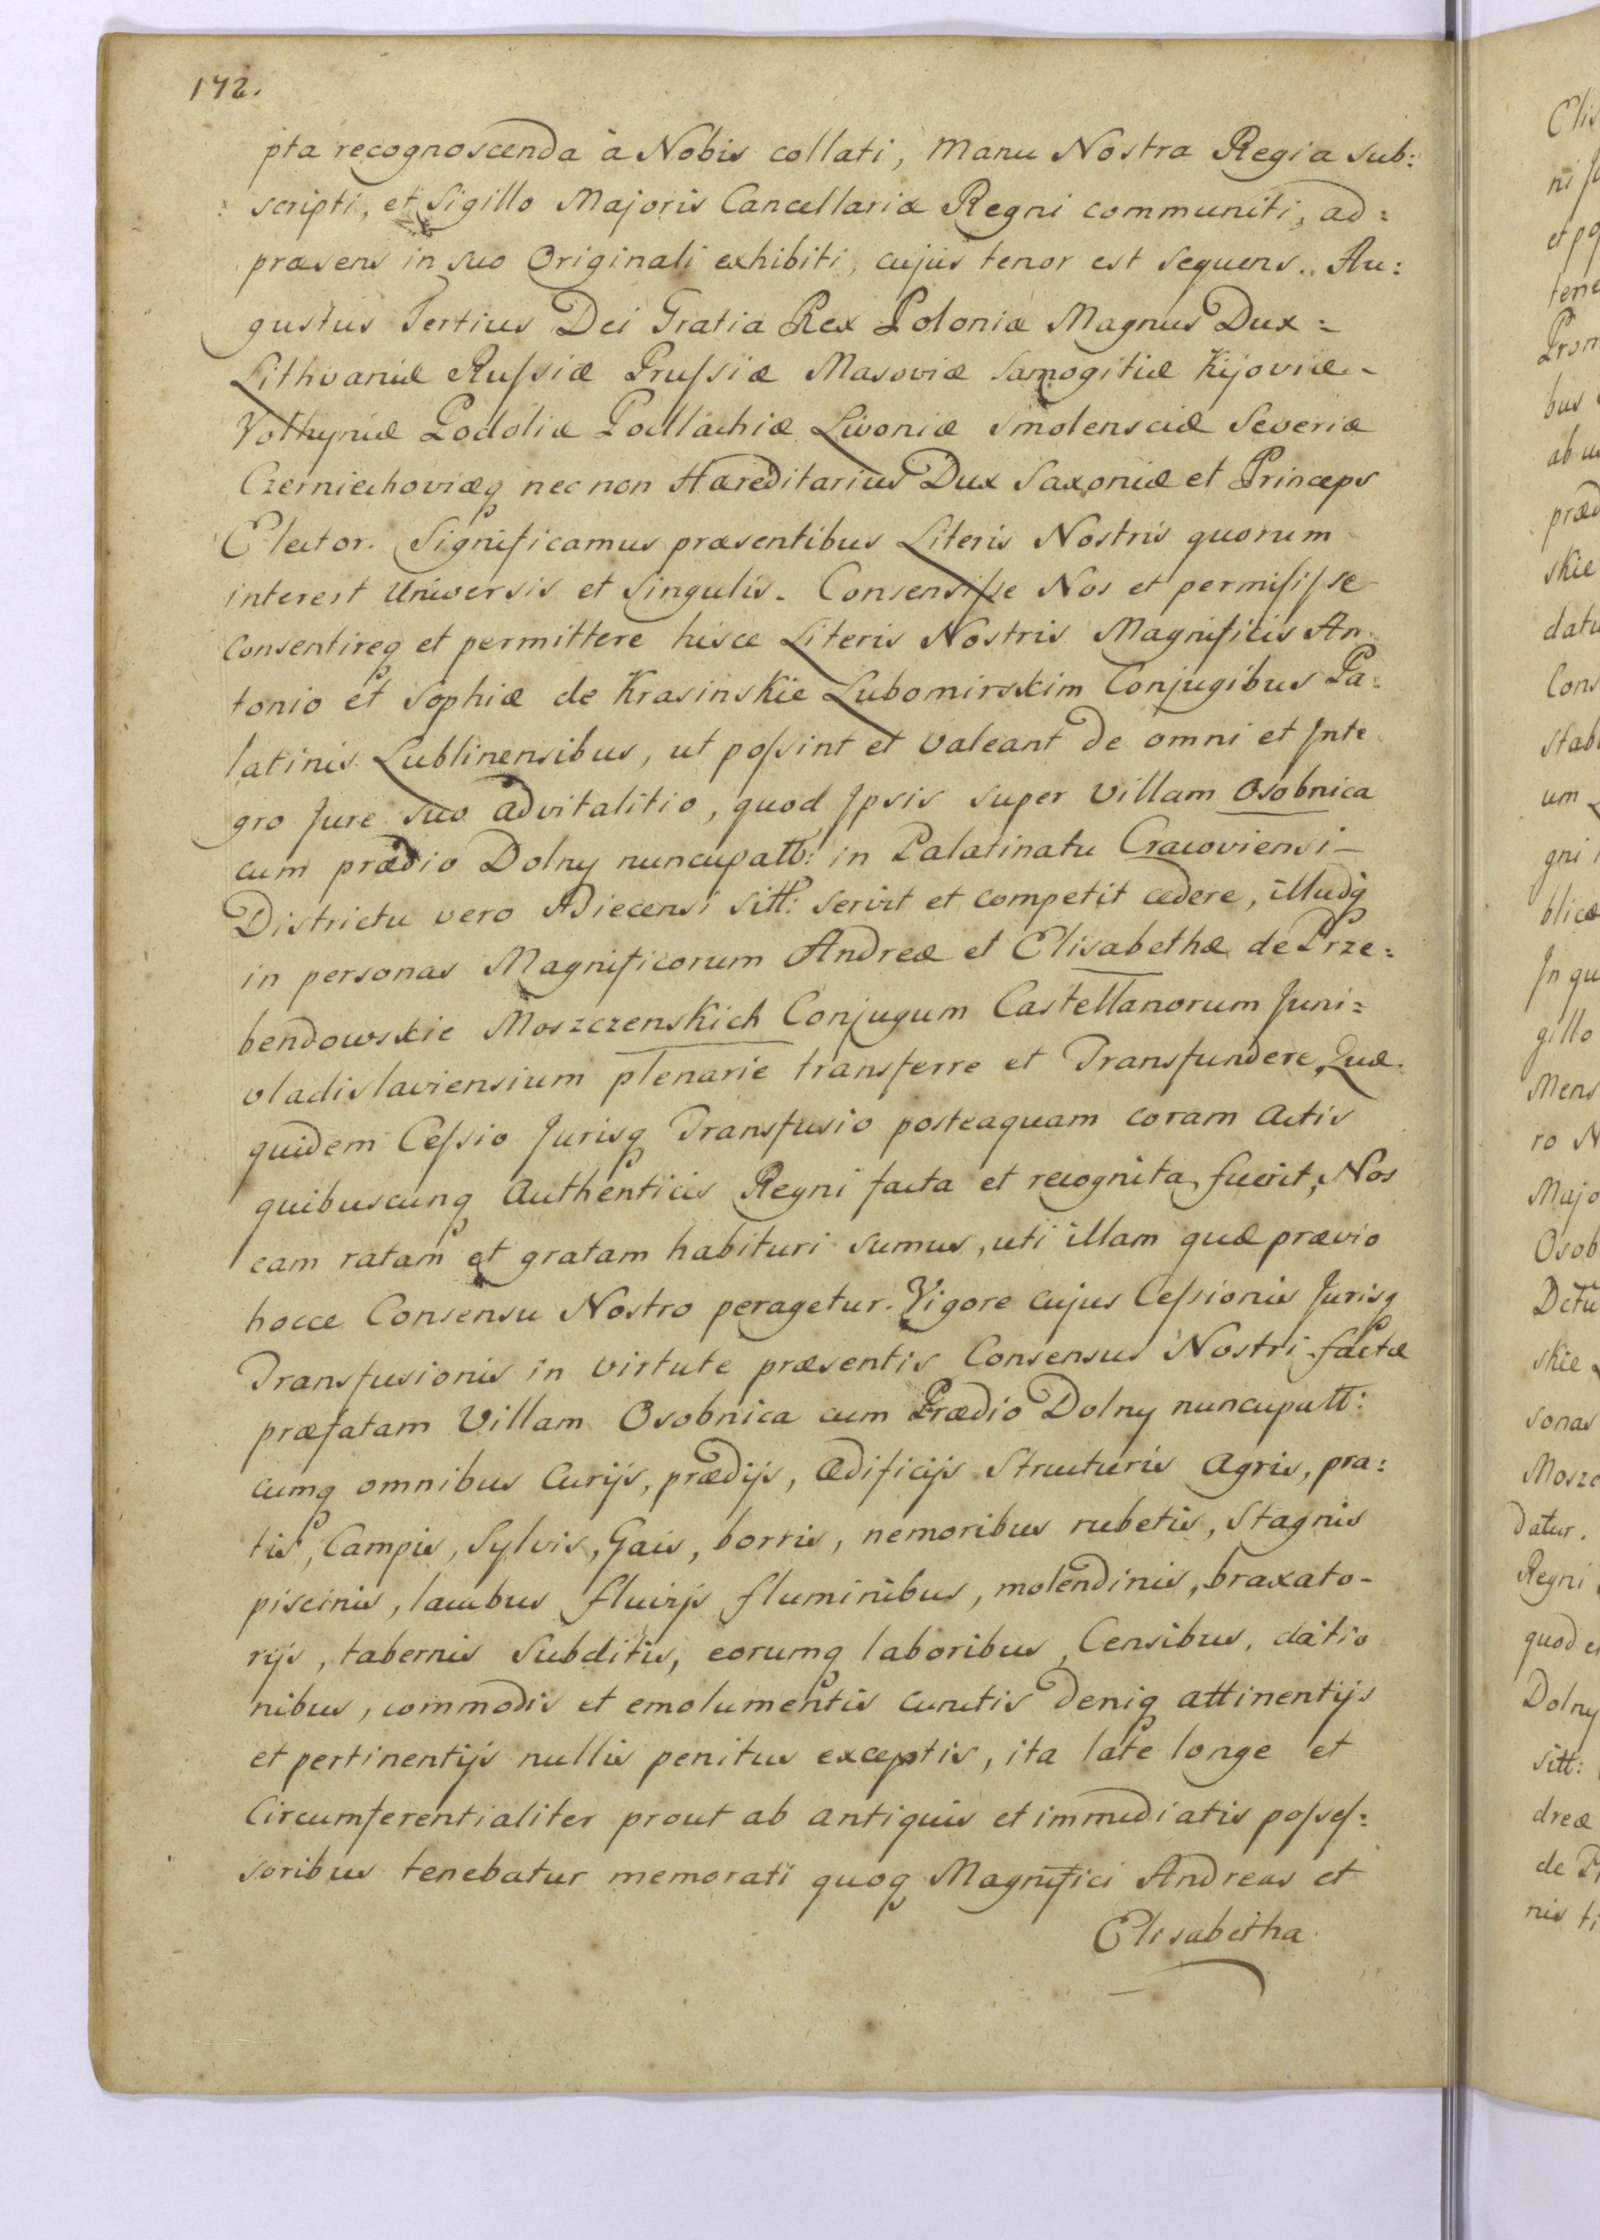 172.
pta recognoscenda à Nobis collati, manu Nostra Regia sub:
scripti, et Sigillo Majoris Cancellariæ Regni communiti, ad:
præsens in suo Originali exhibiti, cujus tenor est sequens.. Au:
gustus Tertius Dei Gratia Rex Poloniæ Magnus Dux=
Lithvaniæ Russiæ Prussiæ Masoviæ Samogitiæ Kijoviæ-
Volhyniæ Podoliæ Podlachiæ Livoniæ Smolensciæ Severiæ
Czerniechoviæq nec non Hæreditarius Dux Saxoniæ et Princeps
Elector. Significamus præsentibus Literis Nostris quorum
interest Universis et Singulis. Consensisse Nos et permisisse
consentireq et permittere hisce Literis Nostris Magnificis An
tonio et Sophiæ de Krasinskie Lubomirskim Conjugibus Pa:
latinis Lublinensibus, ut possint et valeant de omni et Inte
gro Jure suo advitalitio, quod Ipsis super Villam Osobnica
cum prædio Dolny nuncupatt: in Palatinatu Cracoviensi-
Districtu vero Biecensi sitt: servit et competit cedere, illudq
in personas Magnificorum Andreæ et Elisabethæ de Prze:
bendowskie Moszczenskich Conjugum Castellanorum Juni=
vladislaviensium plenarie transferre et Transfundere, Quæ
quidem Cessio Jurisq Transfusio posteaquam coram actis
quibuscunq Authenticis Regni facta et recognita fuerit, Nos
eam ratam et gratam habituri sumus, uti illam quæ prævio
hocce Consensu Nostro peragetur. Vigore cujus Cessionis Jurisq
Transfusionis in virtute præsentis Consensus Nostri factæ
præfatam Villam Osobnica cum Prædio Dolny nuncupatt:
cumq omnibus Curijs, prædijs, Ædificijs Structuris agris, pra:
tis, Campis, Sylvis, Gais, borris, nemoribus rubetis, Stagnis
piscinis, lacubus fluvijs fluminibus, molendinis, braxato-
rijs, tabernis Subditis, eorumq laboribus, Censibus, datio
nibus, commodis et emolumentis cunctis deniq attinentijs
et pertinentijs nullis penitus exceptis, ita late longe et
Circumferentialiter prout ab antiquis et immediatis posses:
soribus tenebatur memorati quoq Magnifici Andreas et
Elisabetha